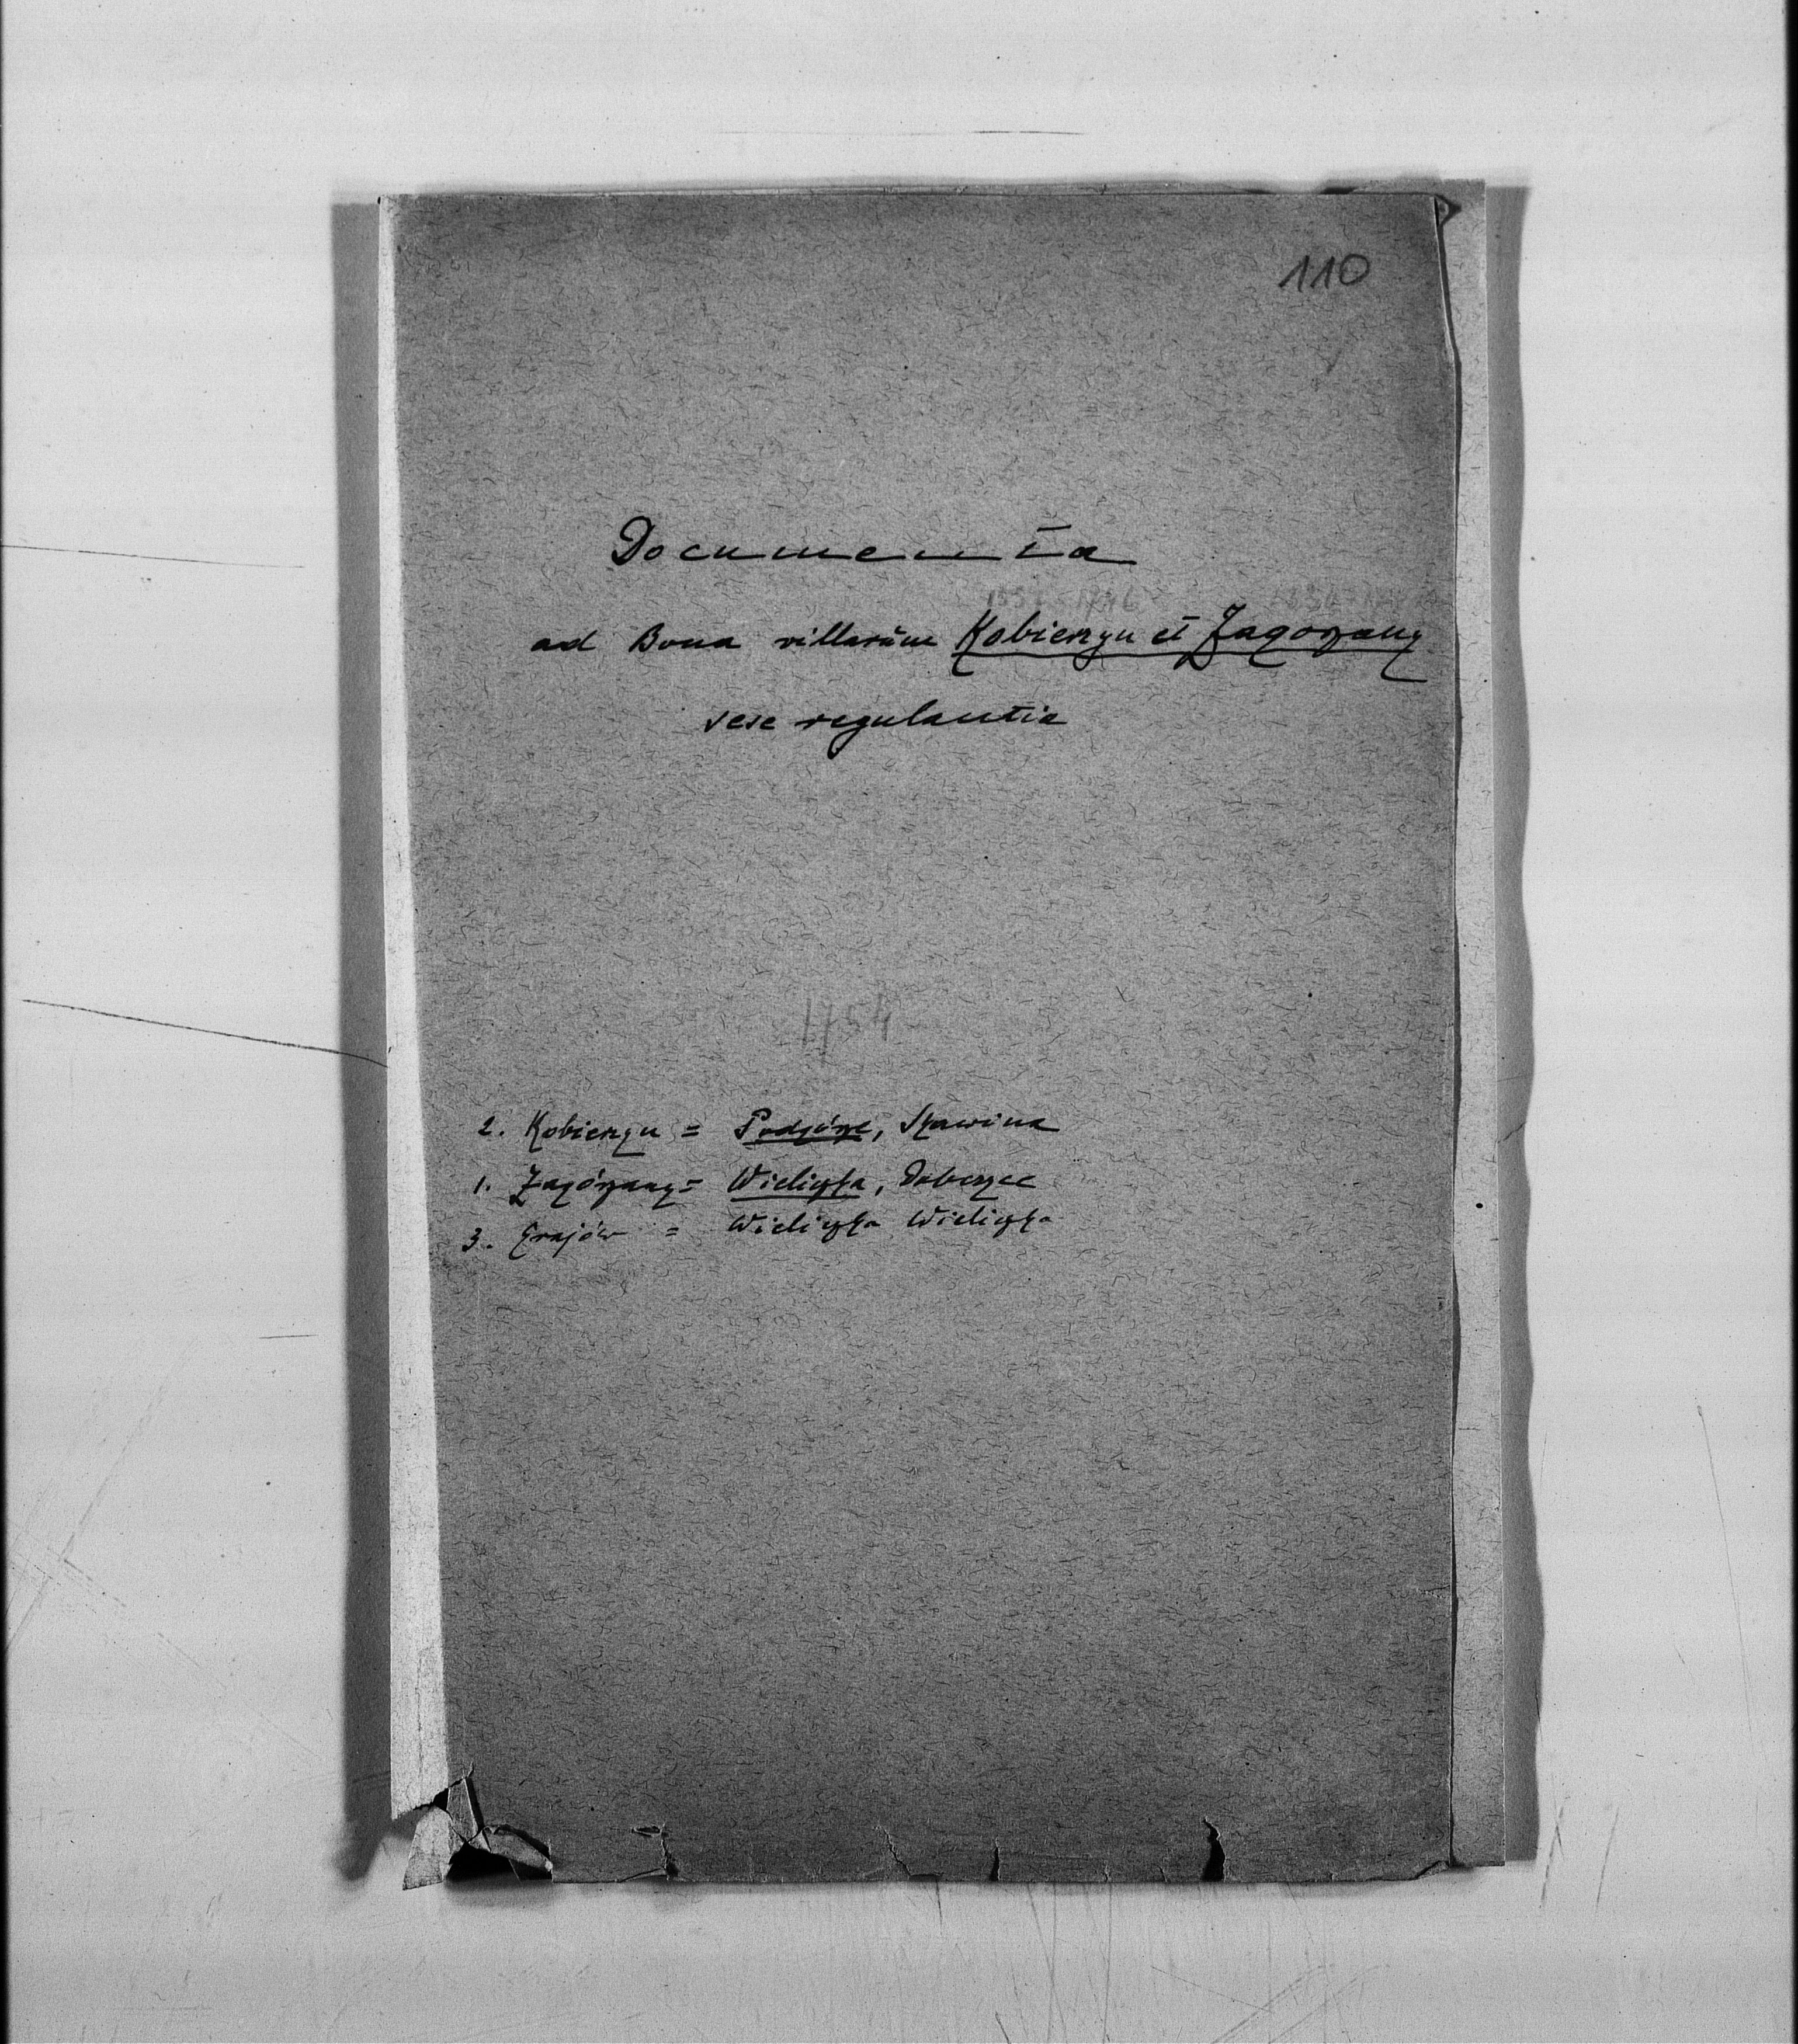 110
Documenta
ad Bona villarum Kobierzyn et Zagorzany
sese regulantia
1754
2. Kobierzyn = Podgórze, Skawina
1. Zagórzany = Wieliczka, Dobczyce
3. Grajów = Wieliczka Wieliczka